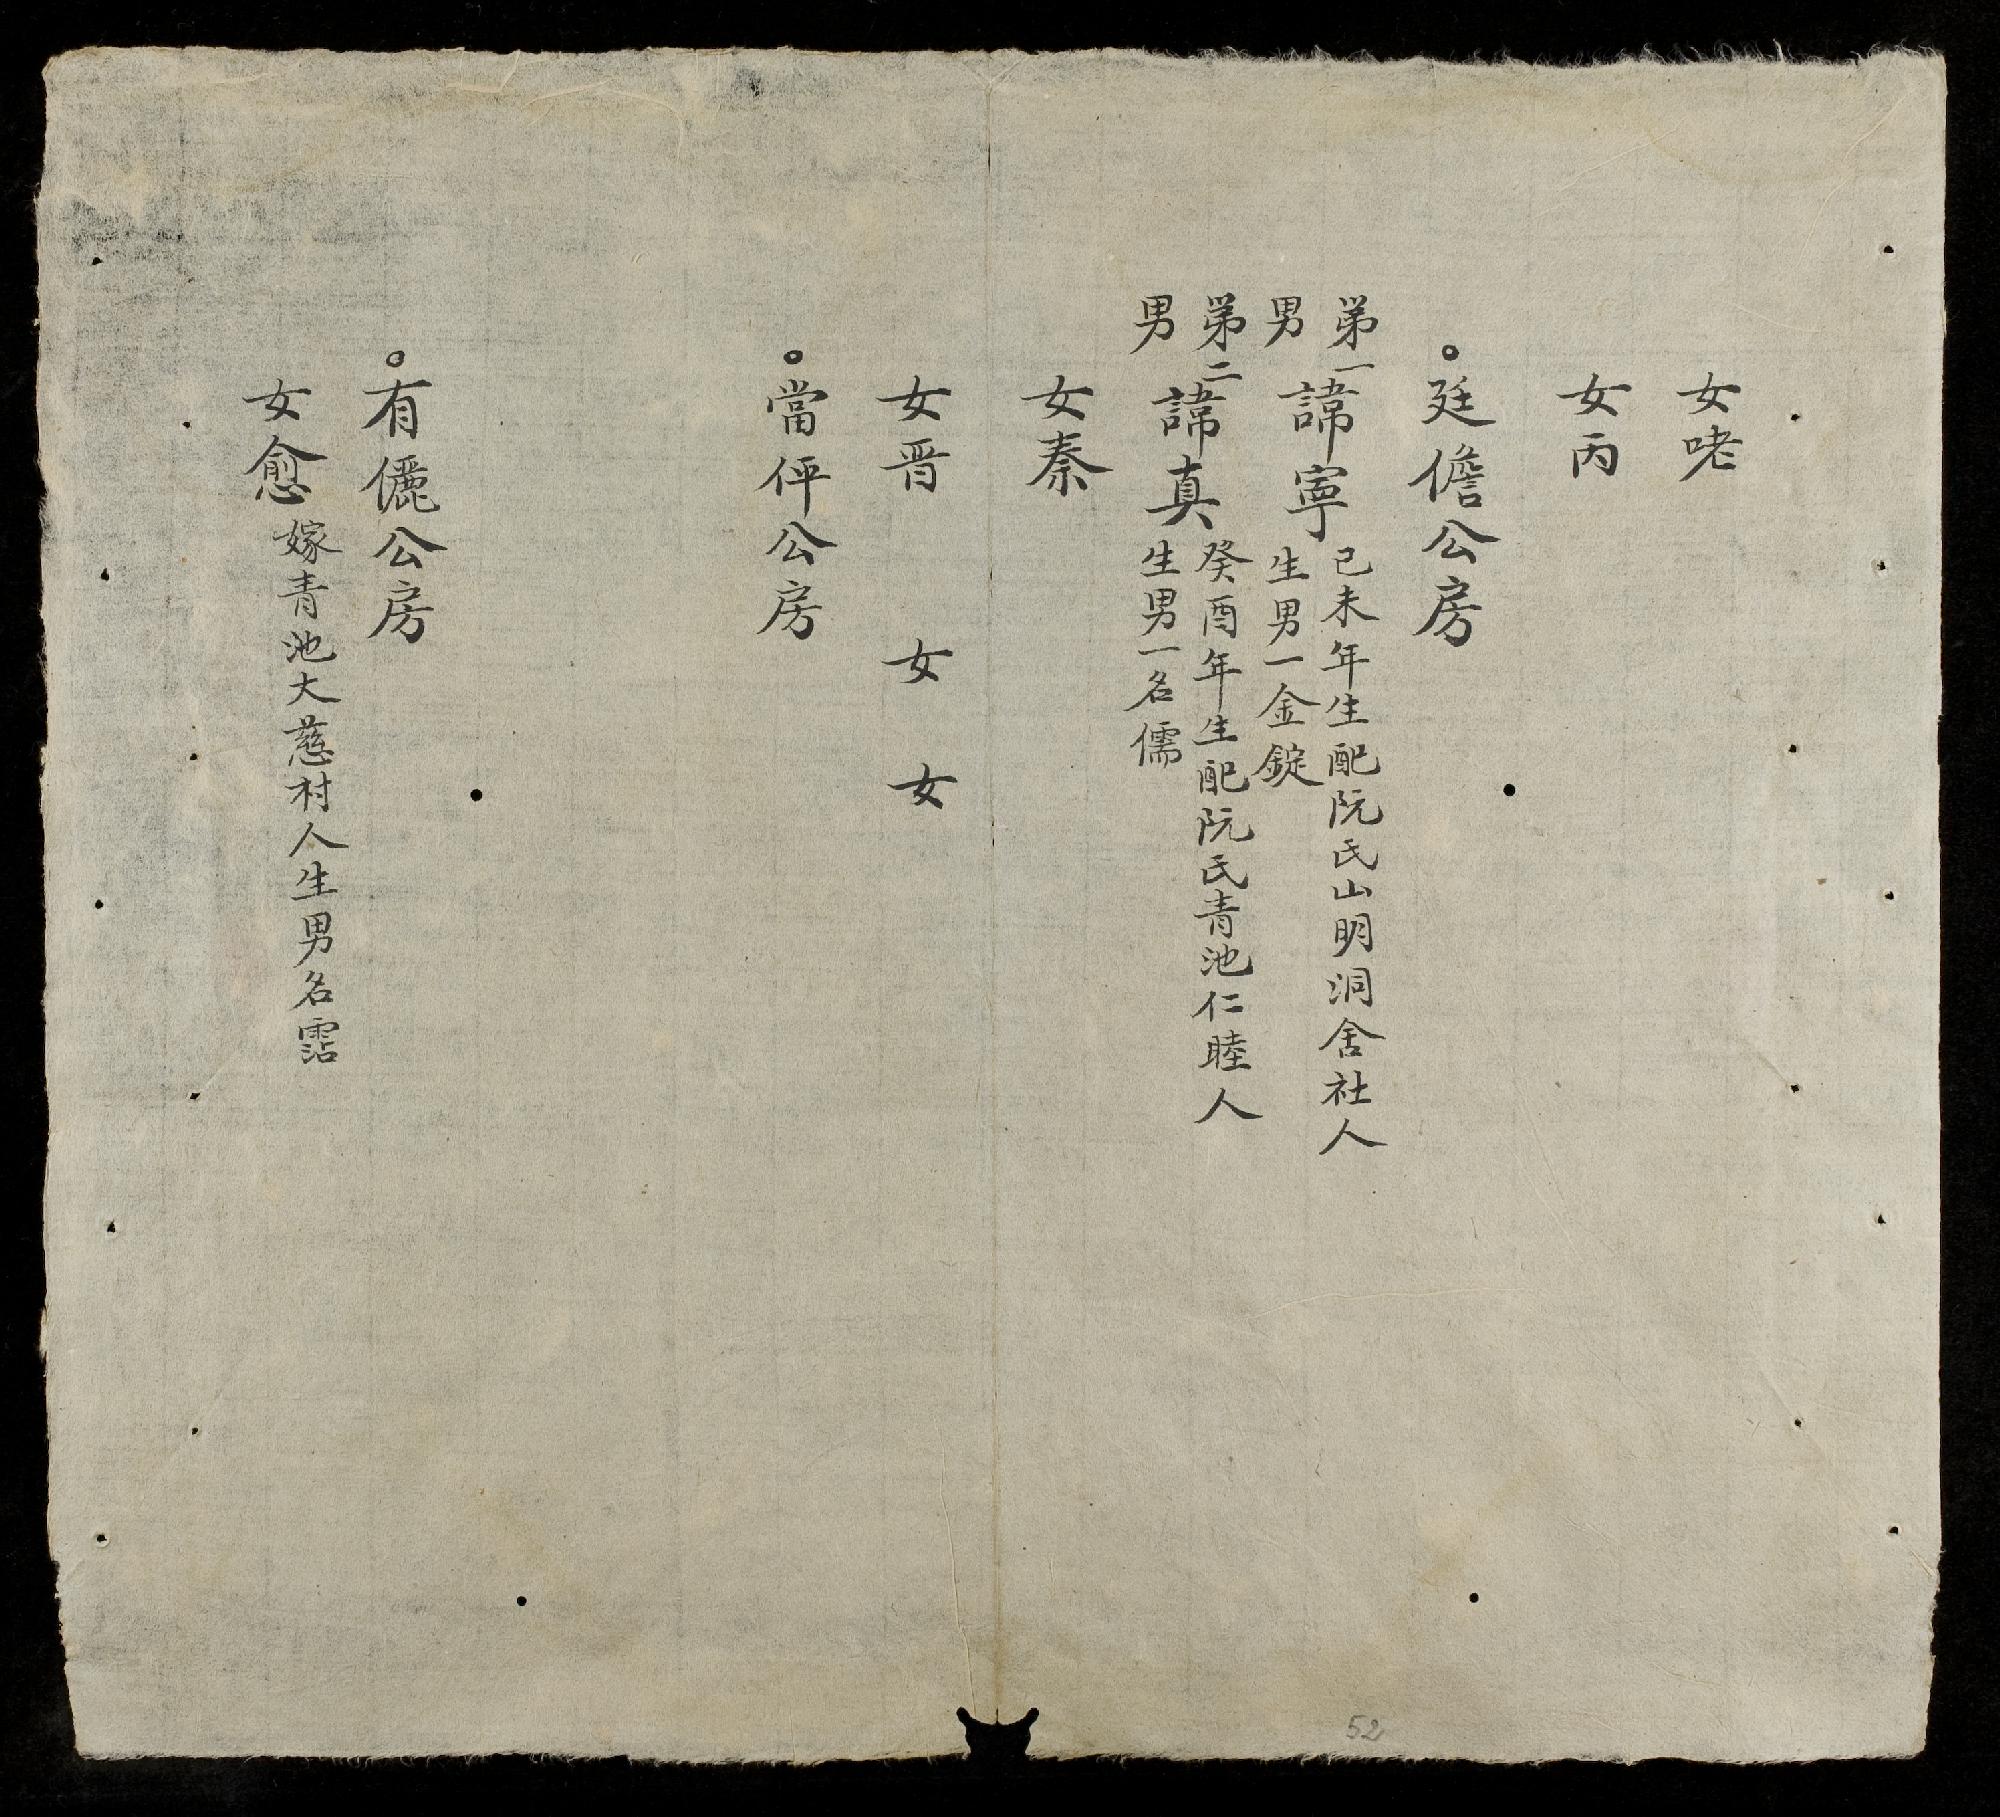 女咾
女丙
○廷儋公房
第一男諱寧己未年生配阮氏山明洞舍社人
生男一金錠
第二男諱真癸酉年生配阮氏青池仁睦人
生男一名儒
女秦
女晋 女 女
○當伻公房
○有儷公房
女愈嫁青池大慈村人生男名霑
52